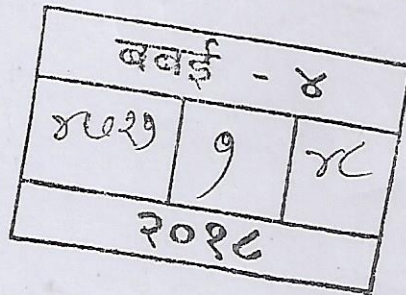 बबई - ४
४७२१ १ ४८
२०१८